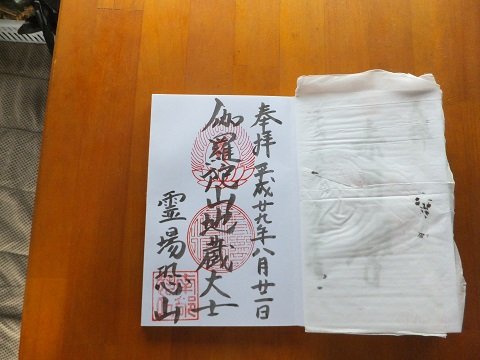 奉拝 平成廿九年八月廿一日
伽羅陀山地蔵大士
霊場恐山